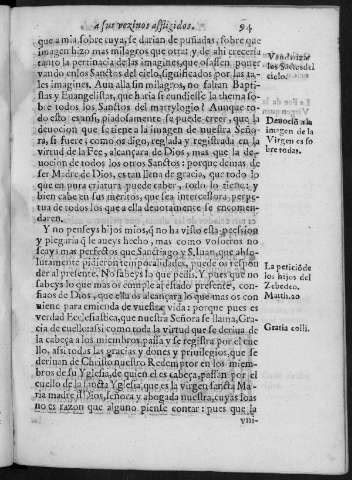 a sus vezinos afligidos. 94
que a mia, sobre cuya, se darian de puñadas, sobre que
imagen hizo mas milagros que otra: y de ahi creceria
tanto la pertinacia de las imagines, que osassen poner
vando en los Sanctos del cielo, significados por las ta-
les imagines. Aun alla sin milagros, no faltan Baptis-
tas y Euangelistas, que haria si cundiesse la thema so-
bre todos los Sanctos del martylogio? Aunque to-
do esto es ansi, piadosamente se puede creer, que la
deuocion que se tiene a la imagen de nuestra Seño-
ra, si fuere, como os digo, reglada y registrada en la
virtud de la Fee, alcançara de Dios, mas que la de-
uocion de todos los otros Sanctos: porque demas de
ser Madre de Dios, es tan llena de gracia, que todo lo
que en pura criatura puede caber, todo lo tiene: y
bien cabe en sus meritos, que sea intercessora perpe-
tua de todos los que a ella deuotamente se encomen-
daren.
Y no penseys hijos mios, q̃ no ha visto esta procession
y plegaria q̃ le aueys hecho, mas como vosotros no
seays mas perfectos que Sanctiago y S. Iuan, que abso-
lutamente pidieron temporalidades, puede os respon-
der al presente. No sabeys lo que pedis. Y pues que no
sabeys lo que mas os cumple al estado presente, con-
fiaos de Dios, que ella os alcançara lo que mas os con-
uiene para enmienda de vuestra vida: porque pues es
verdad Ecclesiastica, que nuestra Señora se llama, Gra-
cia de cuello: assi como toda la virtud que se deriua de
la cabeça a los miembros, passa y se registra por el cue-
llo, assi todas las gracias y dones y priuilegios, que se
deriuan de Christo nuestro Redemptor en los miem-
bros de su Yglesia, de quien el es cabeça, passan por el
cuello de la sancta Yglesia, que es la virgen sancta Ma-
ria madre d̃ Dios, señora y abogada nuestra, cuyas loas
no es razon que alguno piense contar: pues que la
los Sãctos del
cielo.
Deuociõ a la
imagen de la
Virgen es so
bre todas.
La peticiõ de
los hijos del
Zebedeo.
Matth. 20
Gratia colli.